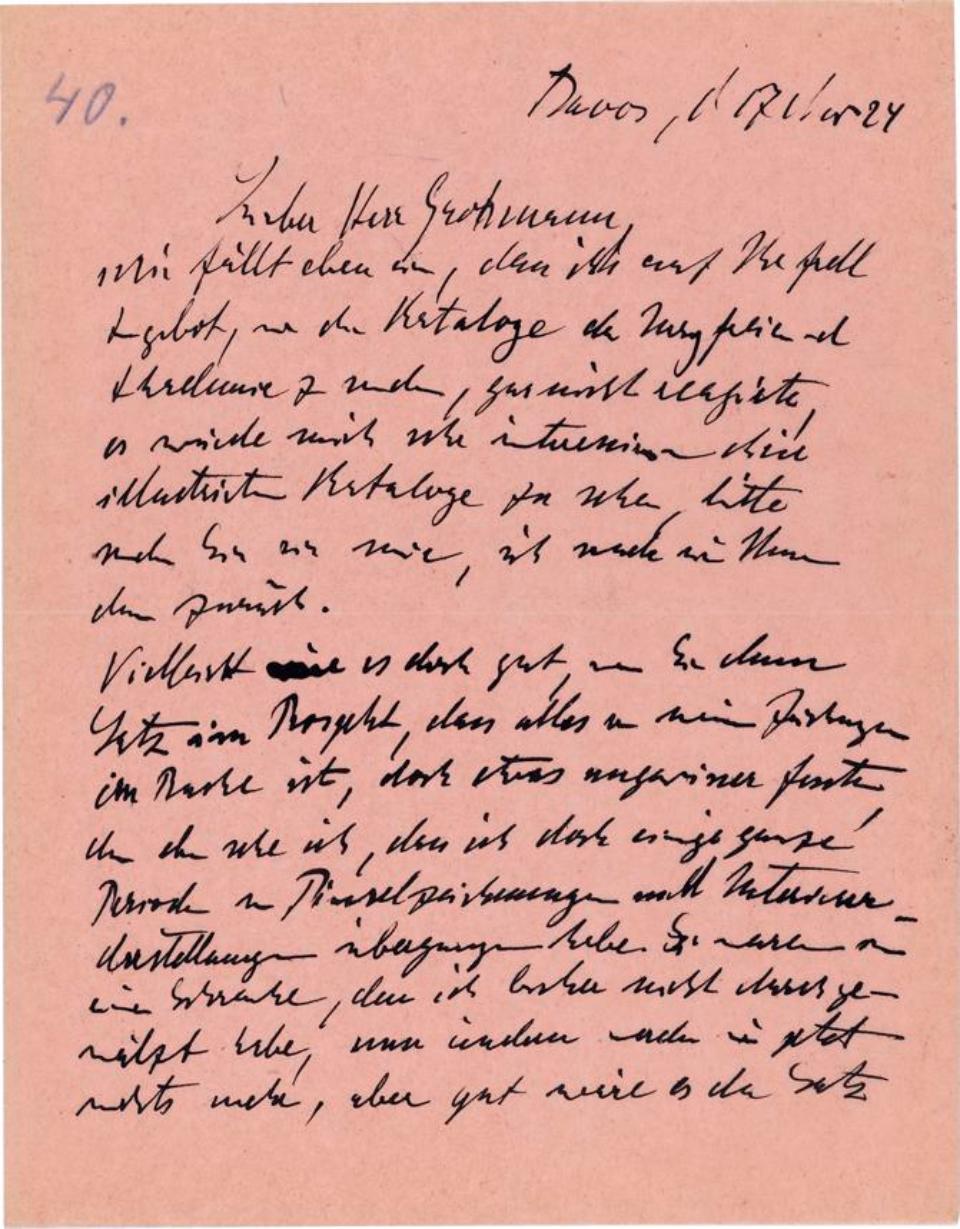 40.
Davos, d 17 Nov 24
Lieber Herr Grohmann,
mir fällt eben ein, dass ich auf Ihr frdl
Angebot, mir die Kataloge der
Akademie zu senden, gar nicht reagirte,
es würde mich sehr interessieren diese
illustrierten Kataloge zu sehen, bitte
senden Sie sie mir, ich sende sie Ihnen
dann zurück.
Vielleicht wäre es doch gut, wenn Sie diesen
Satz im Prospekt, dass alles von meinen Zeichnungen
im Buche ist, doch etwas ungewisser fassten,
denn eben sehe ich, dass ich doch einige ganze
Perioden von Pinselzeichnungen und Interieur-
darstellungen übergangen habe. Sie waren in
einem Schranke, den ich bisher nicht durchge-
wälzt habe, nun ändern wir jetzt
nichts mehr, aber gut wäre es den Satz